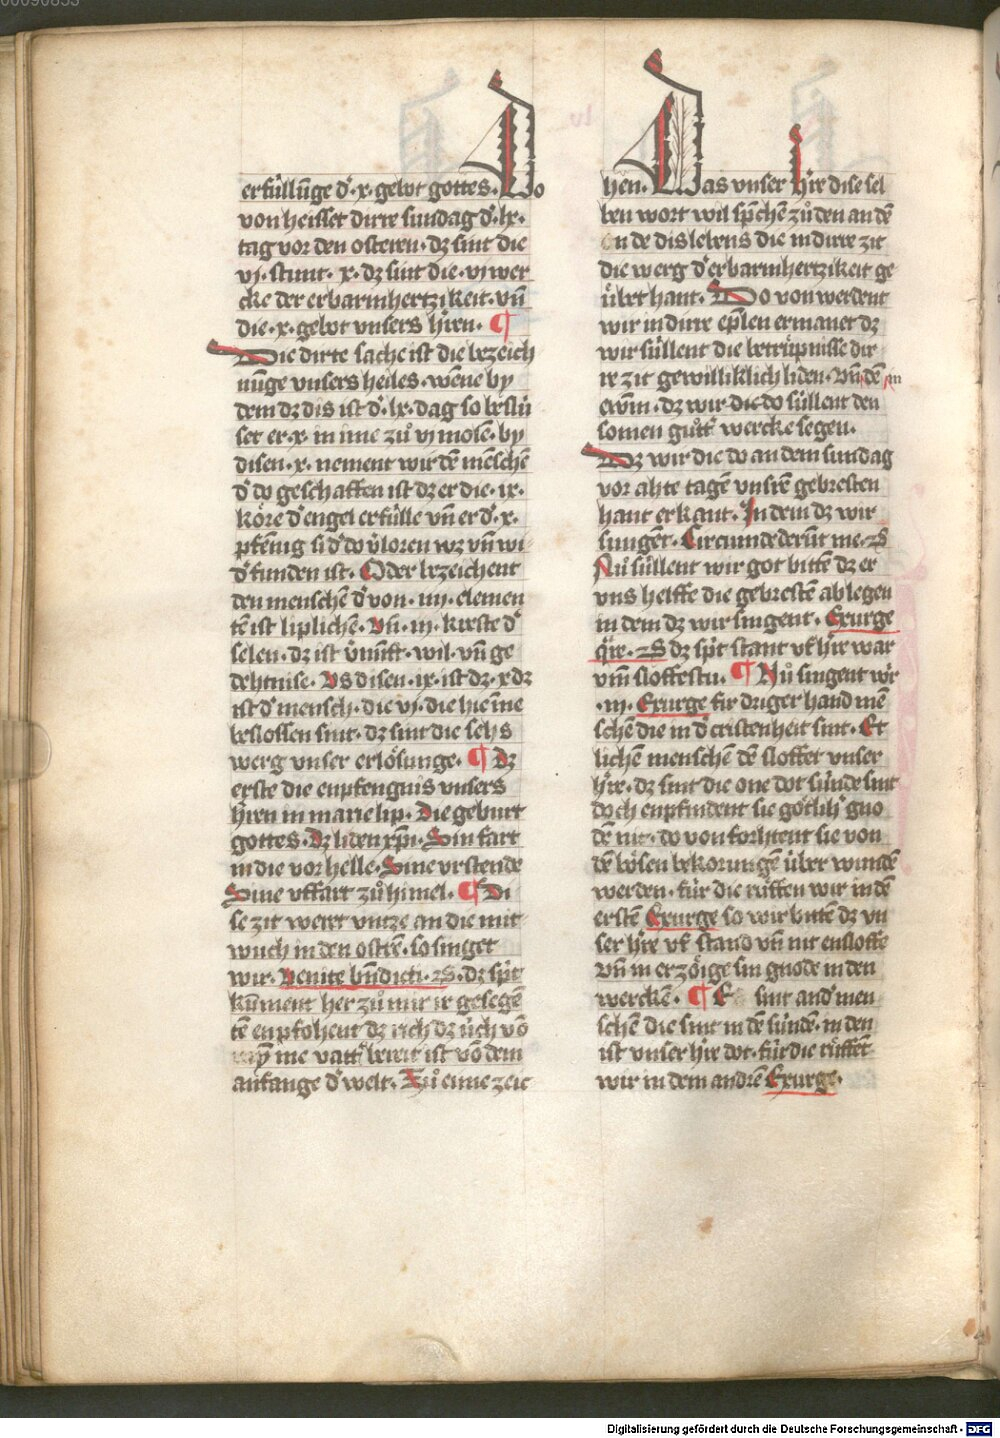 erfúllunge d͛ .x. gebot gottes. Do
von heisset dirre sundag d͛ .lx.
tag vor den osteren. dz sint die
vj. stunt. x. dz sint die. vj wer
cke der erbarmhertzikeit. vn̄
die .x. gebot vnsers h̓ren. ¶
Die dirte sache ist die bezeich
nūge vnsers heiles. wēne by
dem dz dis ist d͛ .lx. dag so beslú
set er .x. in ime zů vj molē. by
disen .x. nement wir dē mēschē
d͛ do geschaffen ist dz er die .ix.
kóre d͛ engel erfúlle vn̄ er d͛ .x.
pfēnig si d͛ do v̓loren wz vn̄ wi
d͛ funden ist. Oder bezeichent
den menschē d͛ von .iiij. elemen
tē ist liplichē. Vn̄ .iij. krefte d͛
selen. dz ist v̓nūft. wil. vn̄ ge
dehtnise. Vs disen .ix. ist dz .x dz
ist d͛ mensch. die vj. die hie īne
beslossen sint. dz sint die sehs
werg vnser erlósunge. ¶ Dz
erste die enpfengnis vnsers
h̓ren in marie lip. Die geburt
gottes. Dz liden xp̄i. Sin fart
in die vorhelle. Sine vrstende
Sine vffart zů himel. ¶ Di
se zit wert vntze an die mit
wuch in den ostrē. so singet
wir. Venite bn̄dicti. ⁊S. dz sp̓it
kūment her zů mir ir gesegē
tē enpfohent dz rich dz úch vō
mȳme vatt͛ bereit ist vō dem
anfange d͛ welt. Zů einie zeic
hen. Was vnser h̓re dise sel
ben wort wil sp̓chē zů den an dē
ende dis lebens die in dirre zit
die werg d͛ erbarmhertzikeit ge
übet hant. Do von werdent
wir in dirre ep̄len ermanet dz
wir súllent die betrüpnisse dir
re zit gewilliklich liden. Vn̄ dē in
ewā. dz wir die do súllent den
somen gůtt͛ wercke segen.
Dz wir die do an dem sundag
vor ahte tagē vnsrē gebresten
hant erkant. In dem dz wir
sungēt. Circumdederūt me. ⁊S
Nů súllent wir got bittē dz er
vns helffe die gebrestē ablegen
in dem dz wir singent. Exurge
q̄re. ⁊S dz sp̓it stant vf h̓re war
vm̄ sloffestu. ¶ Nů singent wir
.iij. Exurge fúr driger hand mē
schē die in d͛ cristenheit sint. Et
lichē menschē dē sloffet vnser
h̓re. dz sint die one dot súnde sint
doch enpfindent sie gótlich͛ gno
dē nit. do von forhtent sie von
dē bósen bekorungē über wundē
werden. fúr die rúffen wir in dē
erstē Exurge so wir bittē dz vn
ser h̓re vf stand vn̄ nit ensloffe
vn̄ in erzóige sin gnode in den
werckē. ¶ Es sint and͛ men
schē die sint in dē súndē. in den
ist vnser h̓re dot. fúr die rúffēt
wir in dem andrē Exurge.
Digitalisierung gefördert durch die Deutsche Forschungsgemeinschaft - DFG